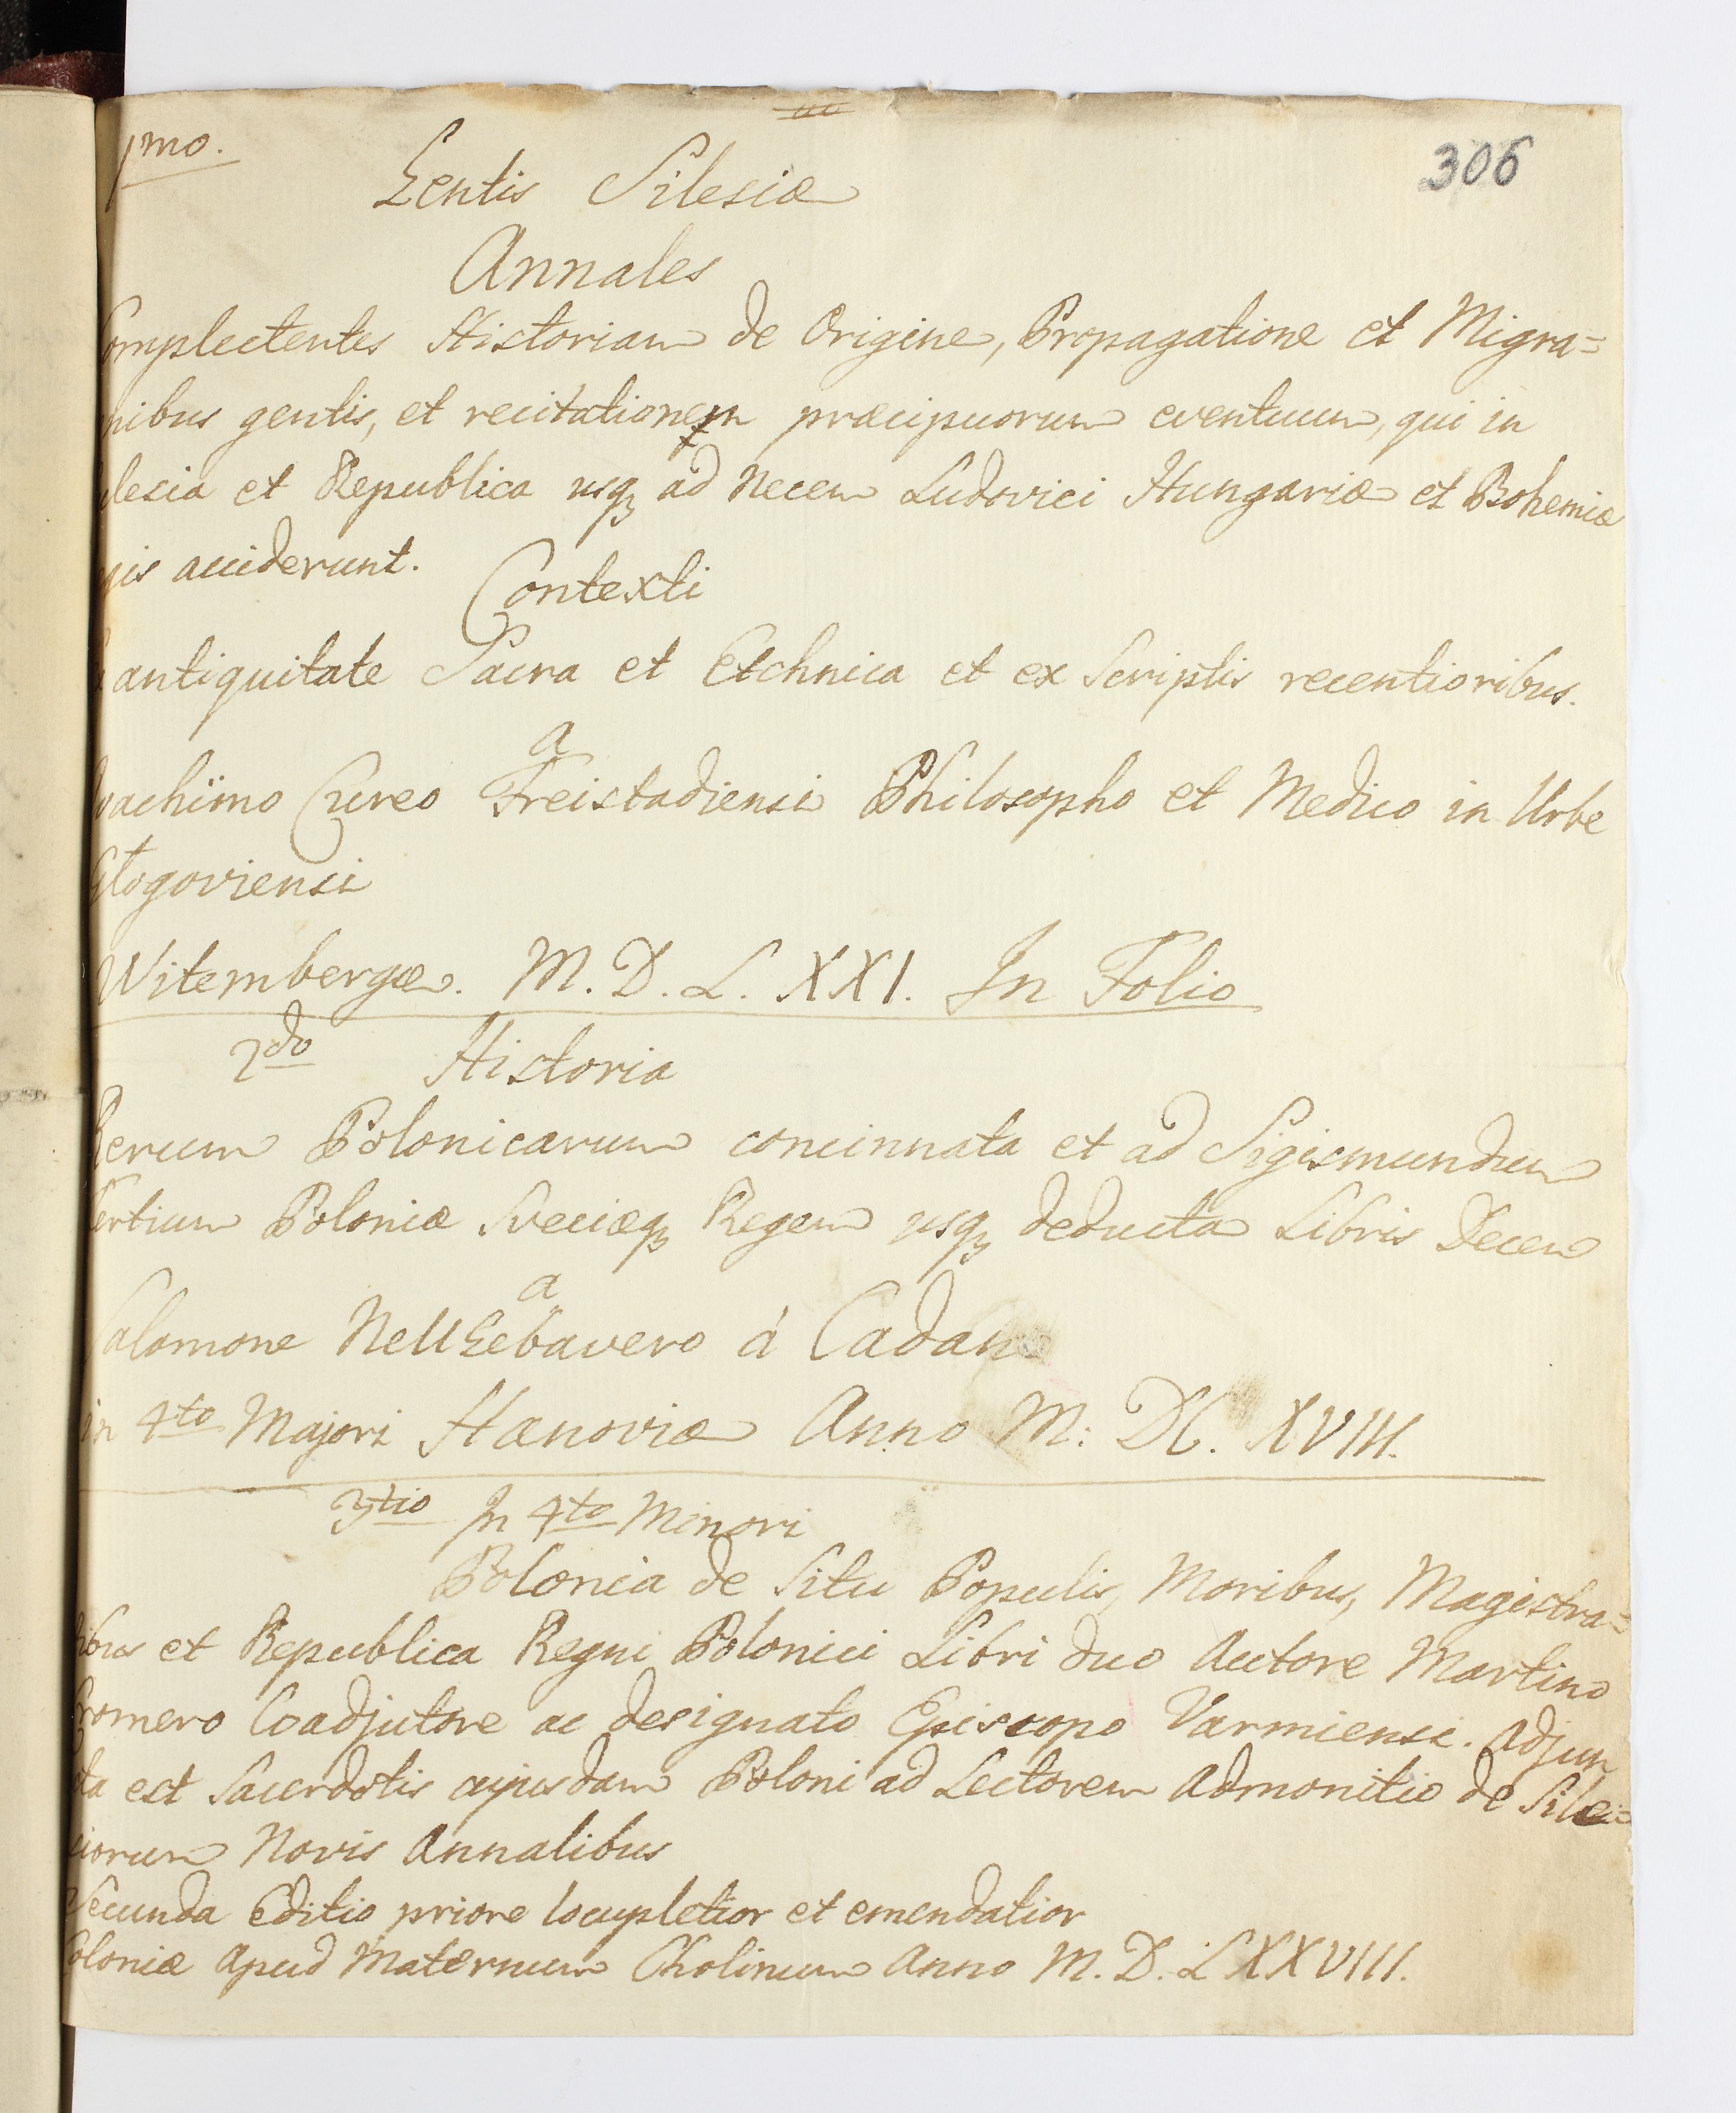 1mo.
306
Gentis Silesiæ
Annales
Complectentes Historiam de Origine, Propagatione et Migra=
nibus gentis, et recitationem præcipuorum eventuum, qui in
clesia et Republica usqꝫ ad Necem Ludovici Hungariæ et Bohemiæ
gis acciderunt.
Contexti
antiquitate Sacra et Etchnica et ex Scriptis recentioribus.
a
Joachimo Cureo Freistadiensi Philosopho et Medico in Urbe
Glogoviensi
Witembergæ. M. D. L. XXI. In Folio
2do Historia
Rerum Polonicarum concinnata et ad Sigismundum
Tertium Poloniæ Sveciæqꝫ Regem usqꝫ deducta Libris Decem
a
Salomone Neugebavero á Cadano
in 4to Majori Hænoviæ Anno M: DC. XVIII.
3tio In 4to Minori
Polonia de Situ Populis, Moribus, Magistra=
tibus et Republica Regni Polonici Libri duo Autore Martino
Cromero Coadjutore ac designato Episcopo Varmiensi. Adjun
cta est Sacerdotis cujusdam Poloni ad Lectorem Admonitio de Sile=
siorum Novis Annalibus
Secunda Editio priore locupletior et emendatior
Coloniæ Apud Maternum Cholinum Anno M. D. LXXVIII.